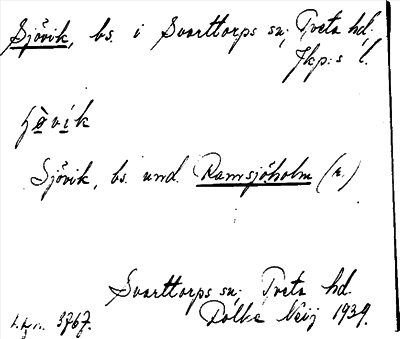 Sjövik, bs. i Svarttorps sn; Tveta hd;
Jkp:s l.
Sjövik, bs. und. Ramsjöholm (r.)
Svarttorps sn; Tveta hd.
3767. Dolke Neij 1939.